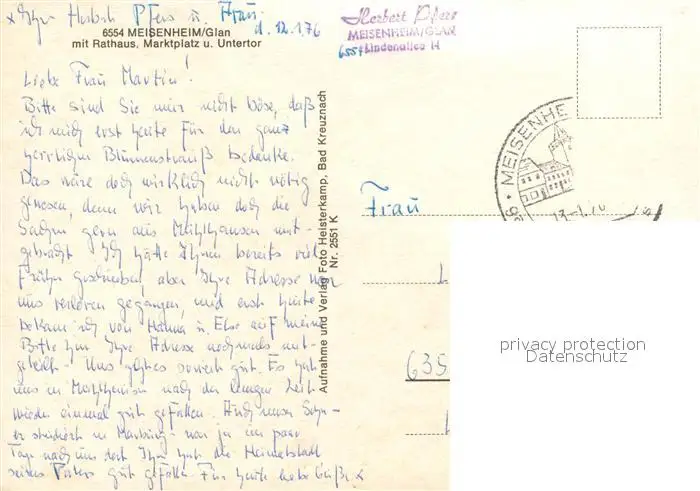 6554 MEISENHEIM/Glan
mit Rathaus, Marktplatz u. Untertor
d. 12.1.76
Liebe Frau Martin!
Bitte sind Sie mir nicht böse, daß
ich mich erst heute für den ganz
herrlichen Blumenstrauß bedanke.
Das wäre doch wirklich nicht nötig
gewesen, denn wir haben doch die
Sachen gern aus Mühlhausen mit-
gebracht. Ich hätte Ihnen bereits viel
früher geschrieben, aber Ihre Adresse war
uns verloren gegangen, und erst heute
bekam ich von Hanna u. Else auf meine
Bitte hin Ihre Adresse nochmals mit-
geteilt. Uns geht es soweit gut. Es hat
uns in Mühlhausen nach der langen Zeit
wieder einmal gut gefallen. Auch unser Sohn -
er studiert in Marburg - war ja ein paar
Tage nach uns dort. Ihm hat die Heimatstadt
seines Vaters gut gefallen. Für heute liebe Grüße
x Ihre Herbert Pfers u. Frau
Aufnahme und Verlag Foto Heisterkamp, Bad Kreuznach
Nr. 2551 K
Herbert Pfers
MEISENHEIM/GLAN
6554 Lindenallee 14
MEISENHE
13-1.76
Frau
635
privacy protection
Datenschutz